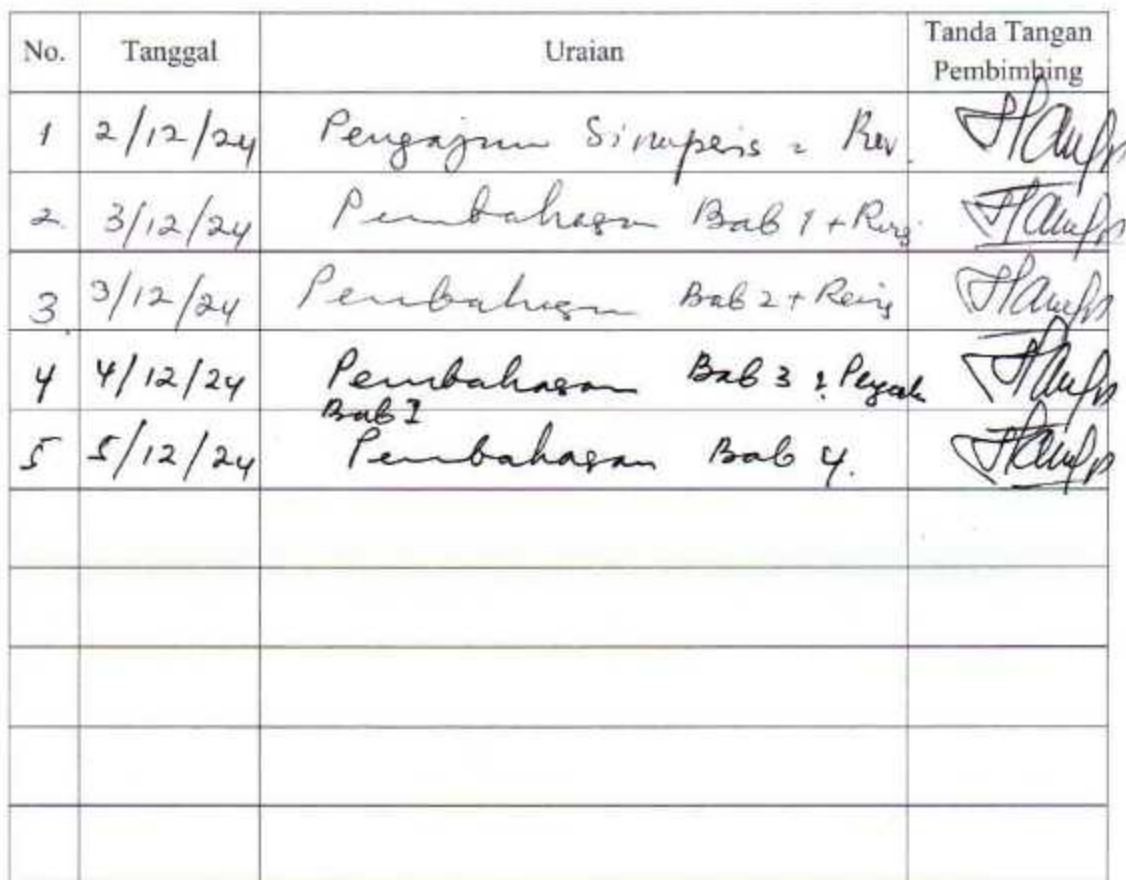 No. Tanggal Uraian Tanda Tangan
Pembimbing
1 2/12/24 Pengajuan Sinopsis Rev.
2. 3/12/24 Pembahasan Bab 1 +
3. 3/12/24 Pembahasan Bab 2 +
4 4/12/24 Pembahasan Bab 3
Bab I
5 5/12/24 Pembahasan Bab 4.